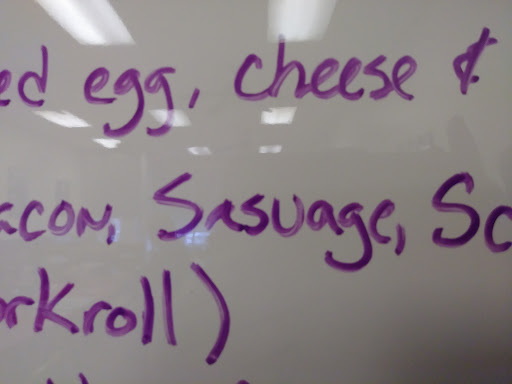 ed egg, cheese &
acon, Sasuage, Sc
orkroll)